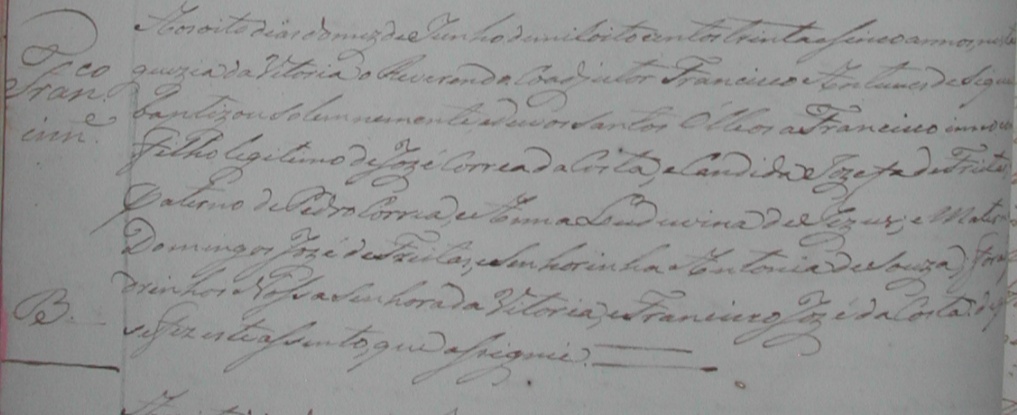 Aos oito dias do mez de Junho de mil oito centos trinta e sinco annos, nesta
Fran.co
inn.e
guezia da Vitoria o Reverendo Coadjutor Francisco Antunes de Siqu
bautizou solemnemente, e deu os Santos Olleos a Francisco innoce
Filho legitimo de Jozé Correa da Costa, e Candida Jozefa de Freitas,
Paterno de Pedro Correa, e Anna Luduvina de Jezus; e Mater
Domingos Jozé de Freitas, e Senhorinha Antonia de Souza; fora
drinhos Nossa Senhora da Vitoria, e Francisco Jozé da Costa, de q
B.
se fez este assento, que assignei.